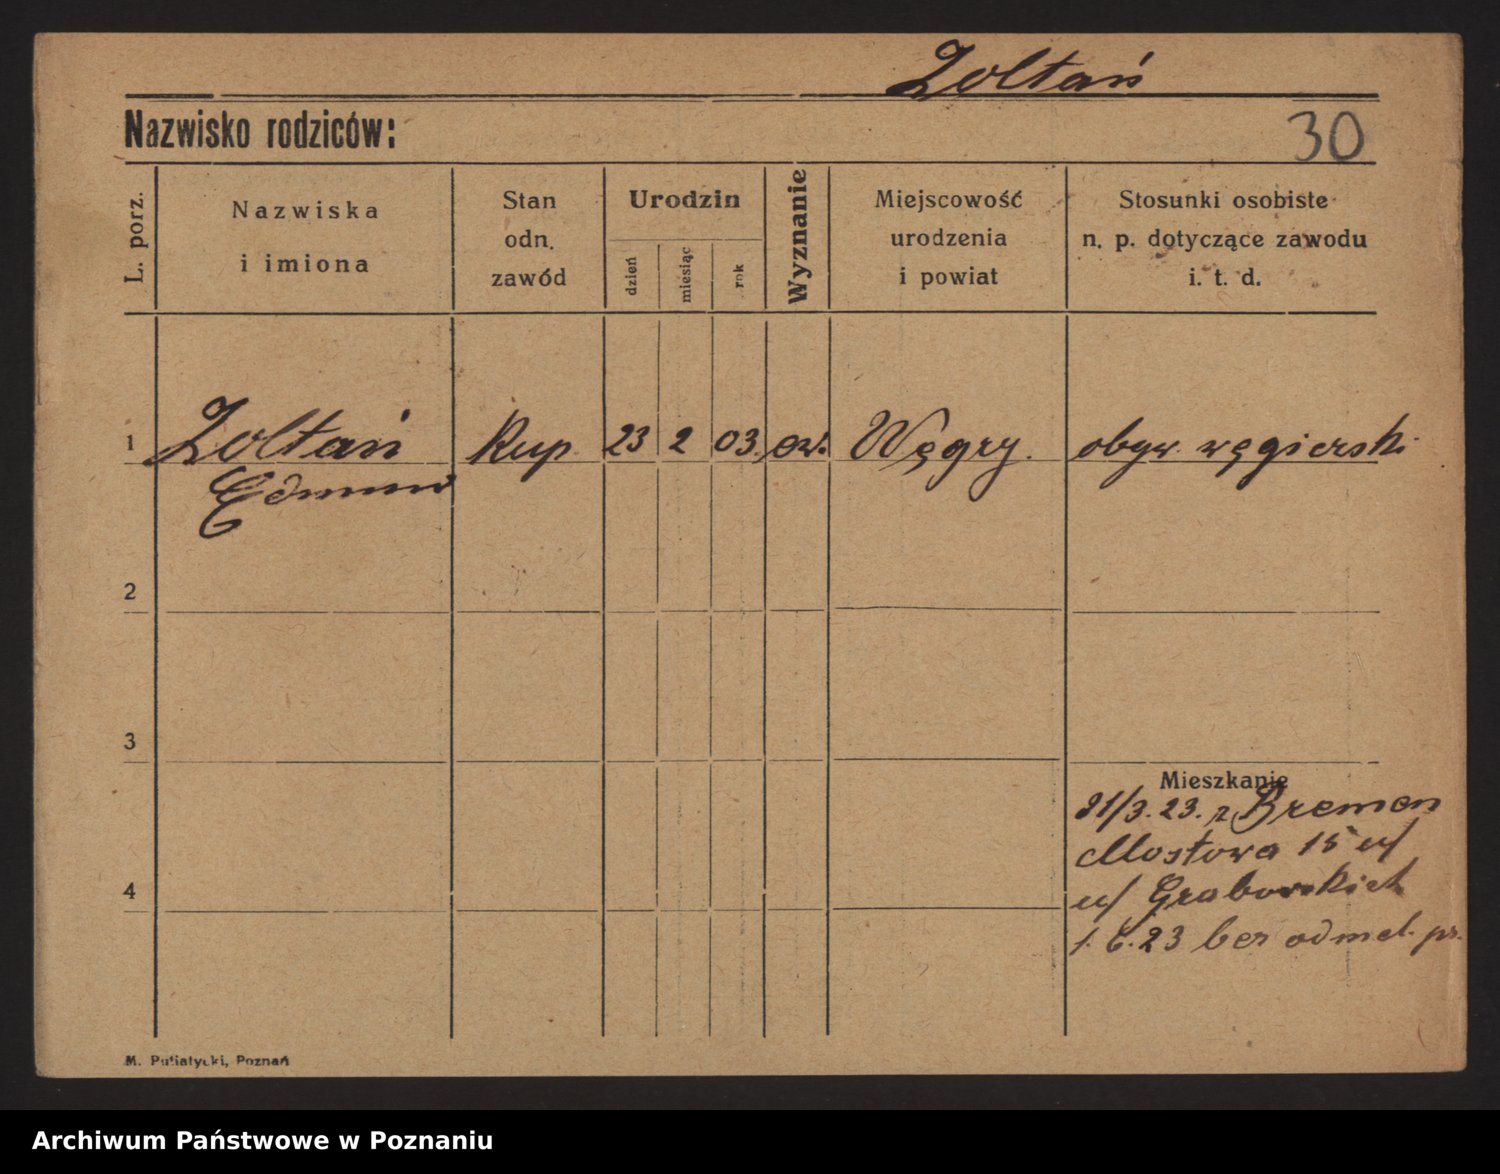 Zoltań
Nazwisko rodziców:
30
L. porz.
Nazwiska
i imiona
Stan
odn.
zawód
Urodzin
dzień
miesiąc
rok
Wyznanie
Miejscowość
urodzenia
i powiat
Stosunki osobiste
n. p. dotyczące zawodu
i. t. d.
1 Zoltań Kup. 23 2 03. ew. Węgry. obyw. węgiersk.
Edmund
2
3
Mieszkanie
21/3.23. z Bremen
Mostowa 15
4
Grabowskich
1.6.23 bez odmel.
M. Putiatycki, Poznań
Archiwum Państwowe w Poznaniu